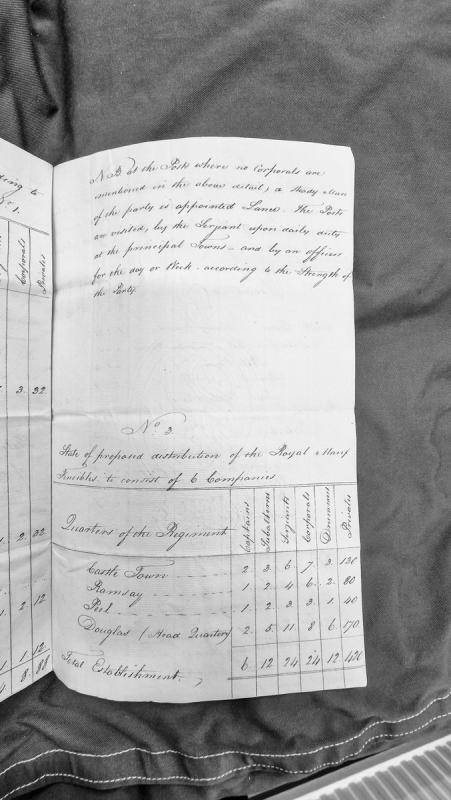 ding to
No. 1.
Corporals Privates
3. 32
2. 32
1. 2 12
1 12
8. 88
N.B. at the Posts where no Corporals are
mentioned in the above detail, a steady Man
of the party is appointed Lance. The Posts
are visited, by the Serjant upon daily duty
at the principal Towns – and by an officer
for the day or Week according to the Strength of
the Party
No. 3.
State of proposed distribution of the Royal Manx
Fencibles to consist of 6 Companies
Quarters of the Regiment Captains Subalterns Serjants Corporals Drummers Privates
Castle Town 2 3 6 7 3 130
Ramsay 1 2 4 6 2 80
Peel 1 2 3 3 1 40
Douglas (Head Quarters) 2 5 11 8 6 170
Total Establishment 6 12 24 24 12 420